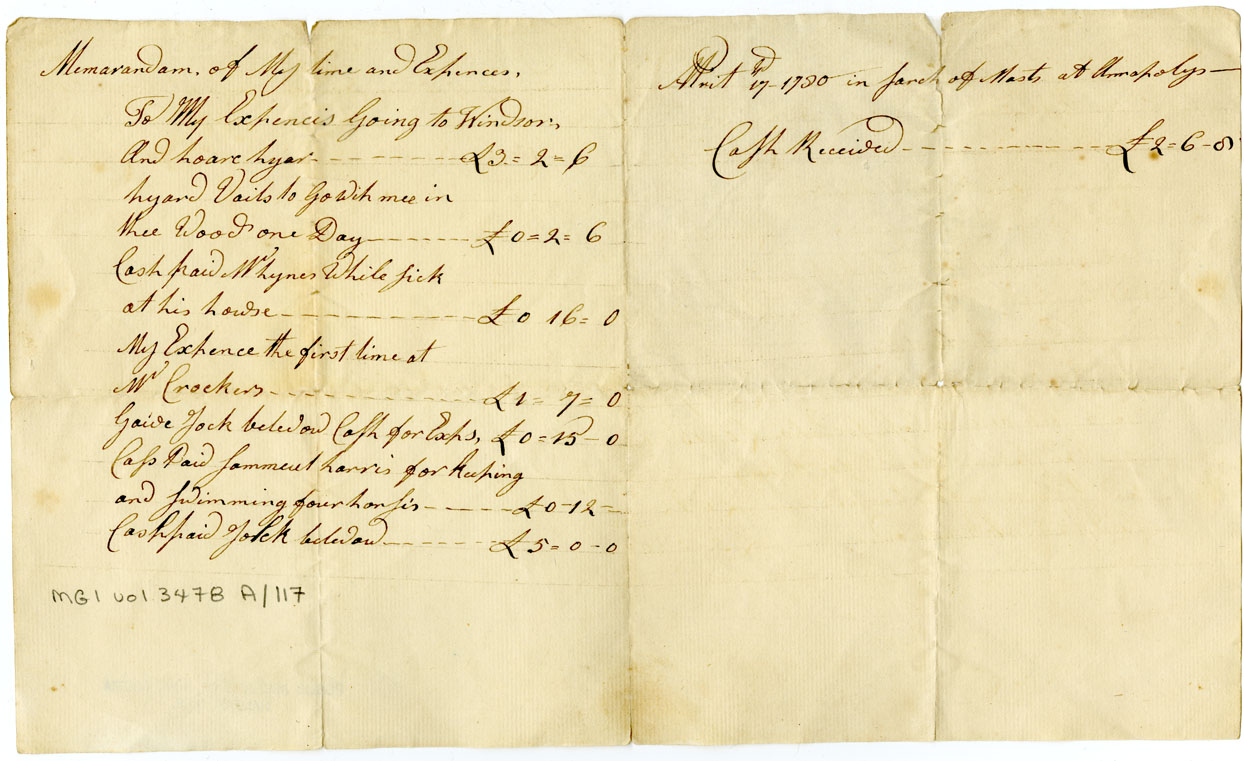 Memarandam, of My time and Expences,
To My Expencis Going to Windsor,
And hoare hyar - - - - - - - £3 = 2 = 6
hyard Vails to Go with mee in
thee Woods one Day - - - - - - £0 = 2 = 6
Cash paid Mr hynes While sick
at his howse - - - - - - - - £0 16 = 0
My Expence the first time at
Mr Crockers - - - - - - - - £1 = 7 = 0
Gaive Jock beledow Cash for Exps, £0 = 15 - 0
Cass Paid Sammeul harris for keeping
and swimming four horsis - - - - - £0 - 12 =
Cash paid Jock beledow - - - - - £5 = 0 - 0
MG1 vol 347B A/117
Aprit 17d - 1780 in sarch of Masts at Annapolys —
Cash Received - - - - - - - - £2 - 6 - 8